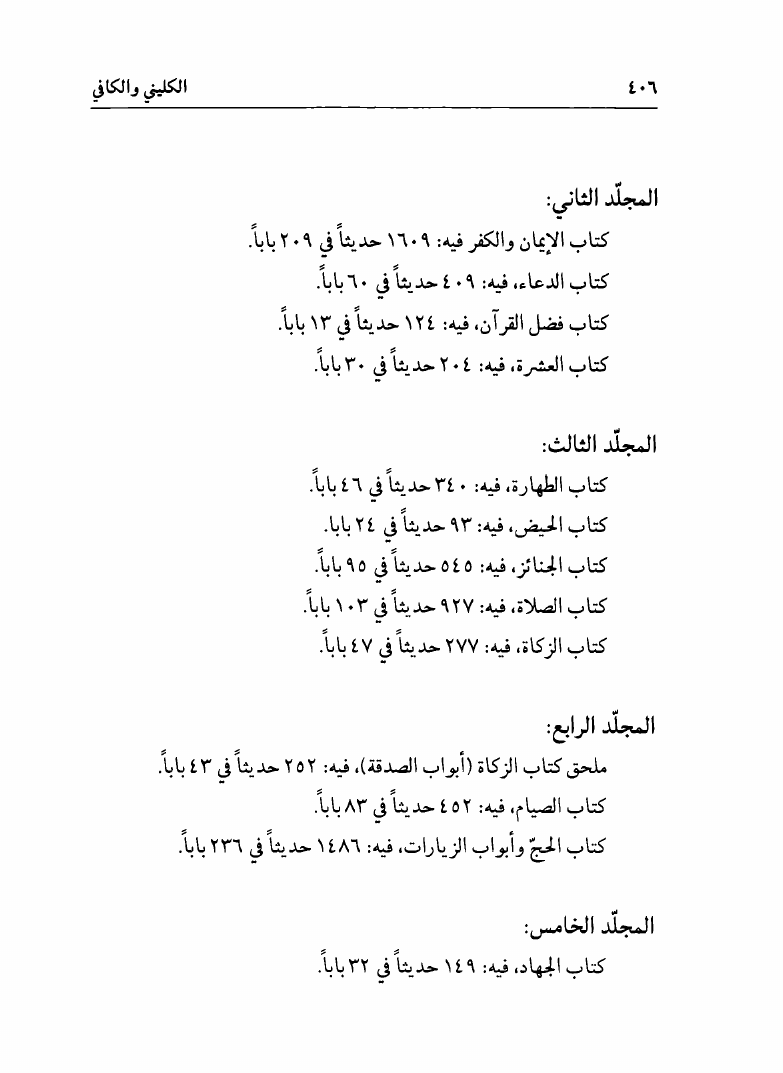 ٤٠٦ الكليني والكافي
المجلّد الثاني:
كتاب الإيمان والكفر فيه: ١٦٠٩ حديثاً في ٢٠٩ باباً.
كتاب الدعاء، فيه: ٤٠٩ حديثاً في ٦٠ باباً.
كتاب فضل القرآن، فيه: ١٢٤ حديثاً في ١٣ باباً.
كتاب العشرة، فيه: ٢٠٤ حديثاً في ٣٠ باباً.
المجلّد الثالث:
كتاب الطهارة، فيه: ٣٤٠ حديثاً في ٤٦ باباً.
كتاب الحيض، فيه: ٩٣ حديثاً في ٢٤ بابا.
كتاب الجنائز، فيه: ٥٤٥ حديثاً في ٩٥ باباً.
كتاب الصلاة، فيه: ٩٢٧ حديثاً في ١٠٣ باباً.
كتاب الزكاة، فيه: ٢٧٧ حديثاً في ٤٧ باباً.
المجلّد الرابع:
ملحق كتاب الزكاة (أبواب الصدقة)، فيه: ٢٥٢ حديثاً في ٤٣ باباً.
كتاب الصيام، فيه: ٤٥٢ حديثاً في ٨٣ باباً.
كتاب الحجّ وأبواب الزيارات، فيه: ١٤٨٦ حديثاً في ٢٣٦ باباً.
المجلّد الخامس:
كتاب الجهاد، فيه: ١٤٩ حديثاً في ٣٢ باباً.